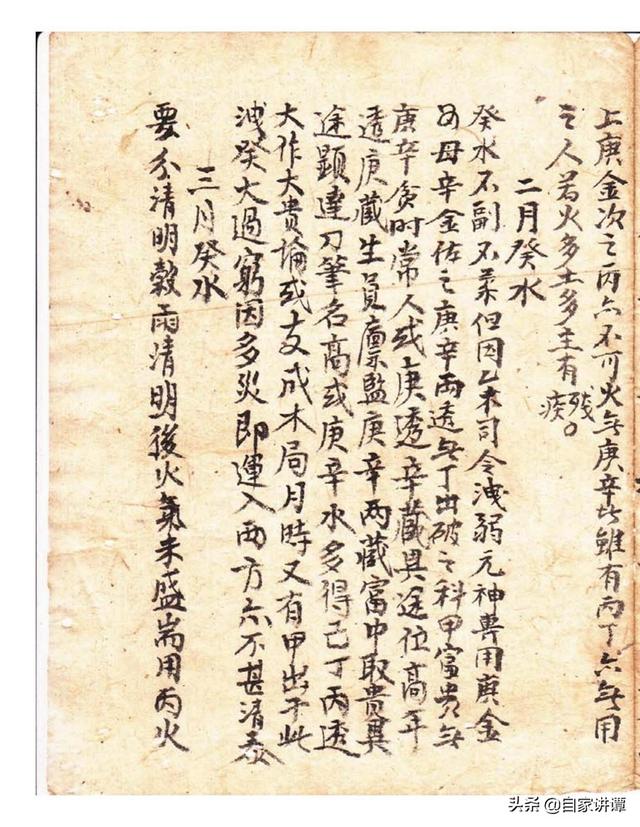 上庚金次之丙亦不可火無庚辛此雖有丙丁亦無用
之人若火多土多主有殘疾
二月癸水
癸水不副不柔但因乙木司令洩弱元神專用庚金
為母辛金佐之庚辛兩透無丁出破之科甲富貴無
庚辛貧賤常人或庚透辛藏異途位高辛
透庚藏生員廩監庚辛兩藏富中取貴異
途顯達刀筆名高或庚辛水多得己丁丙透
大作大貴論或支成木局月時又有甲出干此
洩癸大過窮困多災即運入西方亦不甚清泰
三月癸水
要分清明穀雨清明後火氣未盛耑用丙火
头条 @自家讲谭